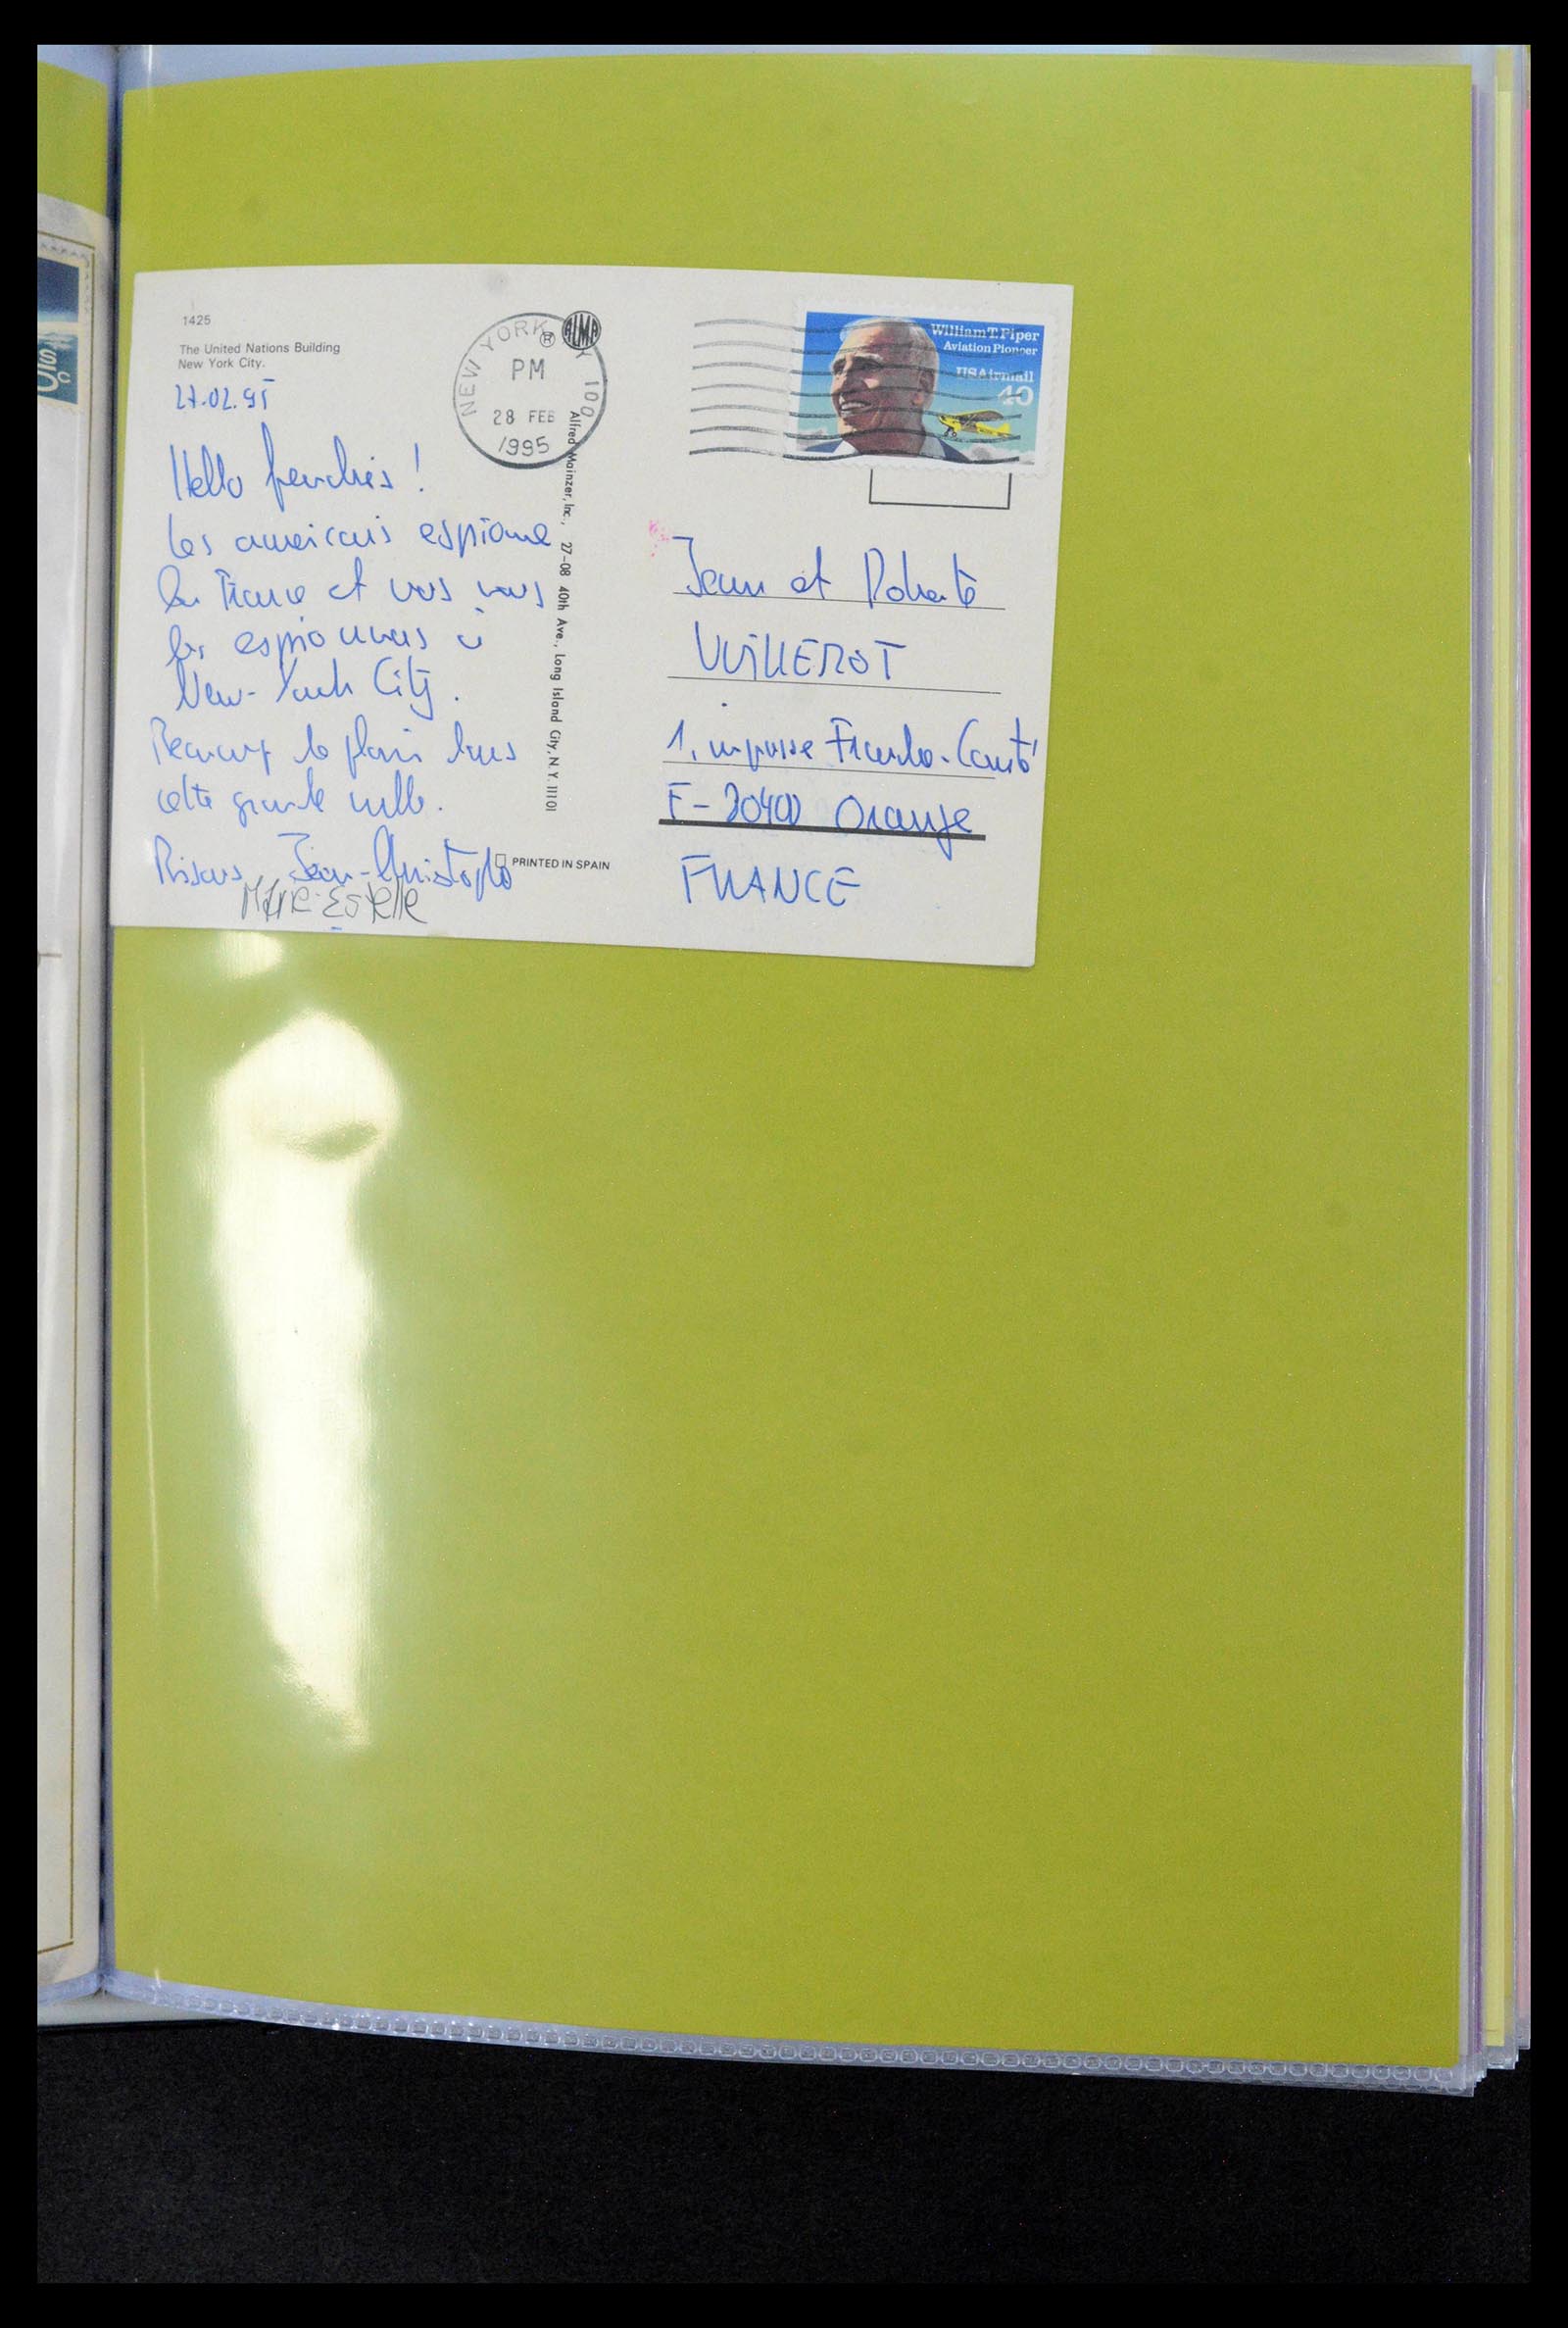 1425
The United Nations Building
New York City.
27.02.95
Hello frenchies !
Les americains espionne
la France et nous nous
les espionnons à
New-York City.
Beaucoup de plaisir dans
cette grande ville.
Bisous, Jean-Christophe
MARIE-ESTELLE
NEW YORK
100
PM
28 FEB
1995
ALMA
®
Alfred Mainzer, Inc., 27-08 40th Ave., Long Island City, N.Y. 11101
PRINTED IN SPAIN
William T. Piper
Aviation Pioneer
USAirmail
40
Jean et
VUILLEROT
1, impasse Franche-Comté
F-84100 Orange
FRANCE